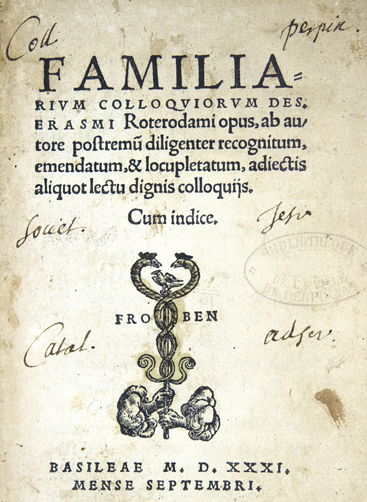 Coll perpin.
FAMILIA=
RIVM COLLOQVIORVM DES.
ERASMI Roterodami opus, ab au/
tore postremũ diligenter recognitum,
emendatum, & locupletatum, adiectis
aliquot lectu dignis colloquijs.
Cum indice.
Societ. Jesv
BIBLIOTHEQUE
FRO BEN
Catal. adscr.
BASILEAE M. D. XXXI.
MENSE SEPTEMBRI.